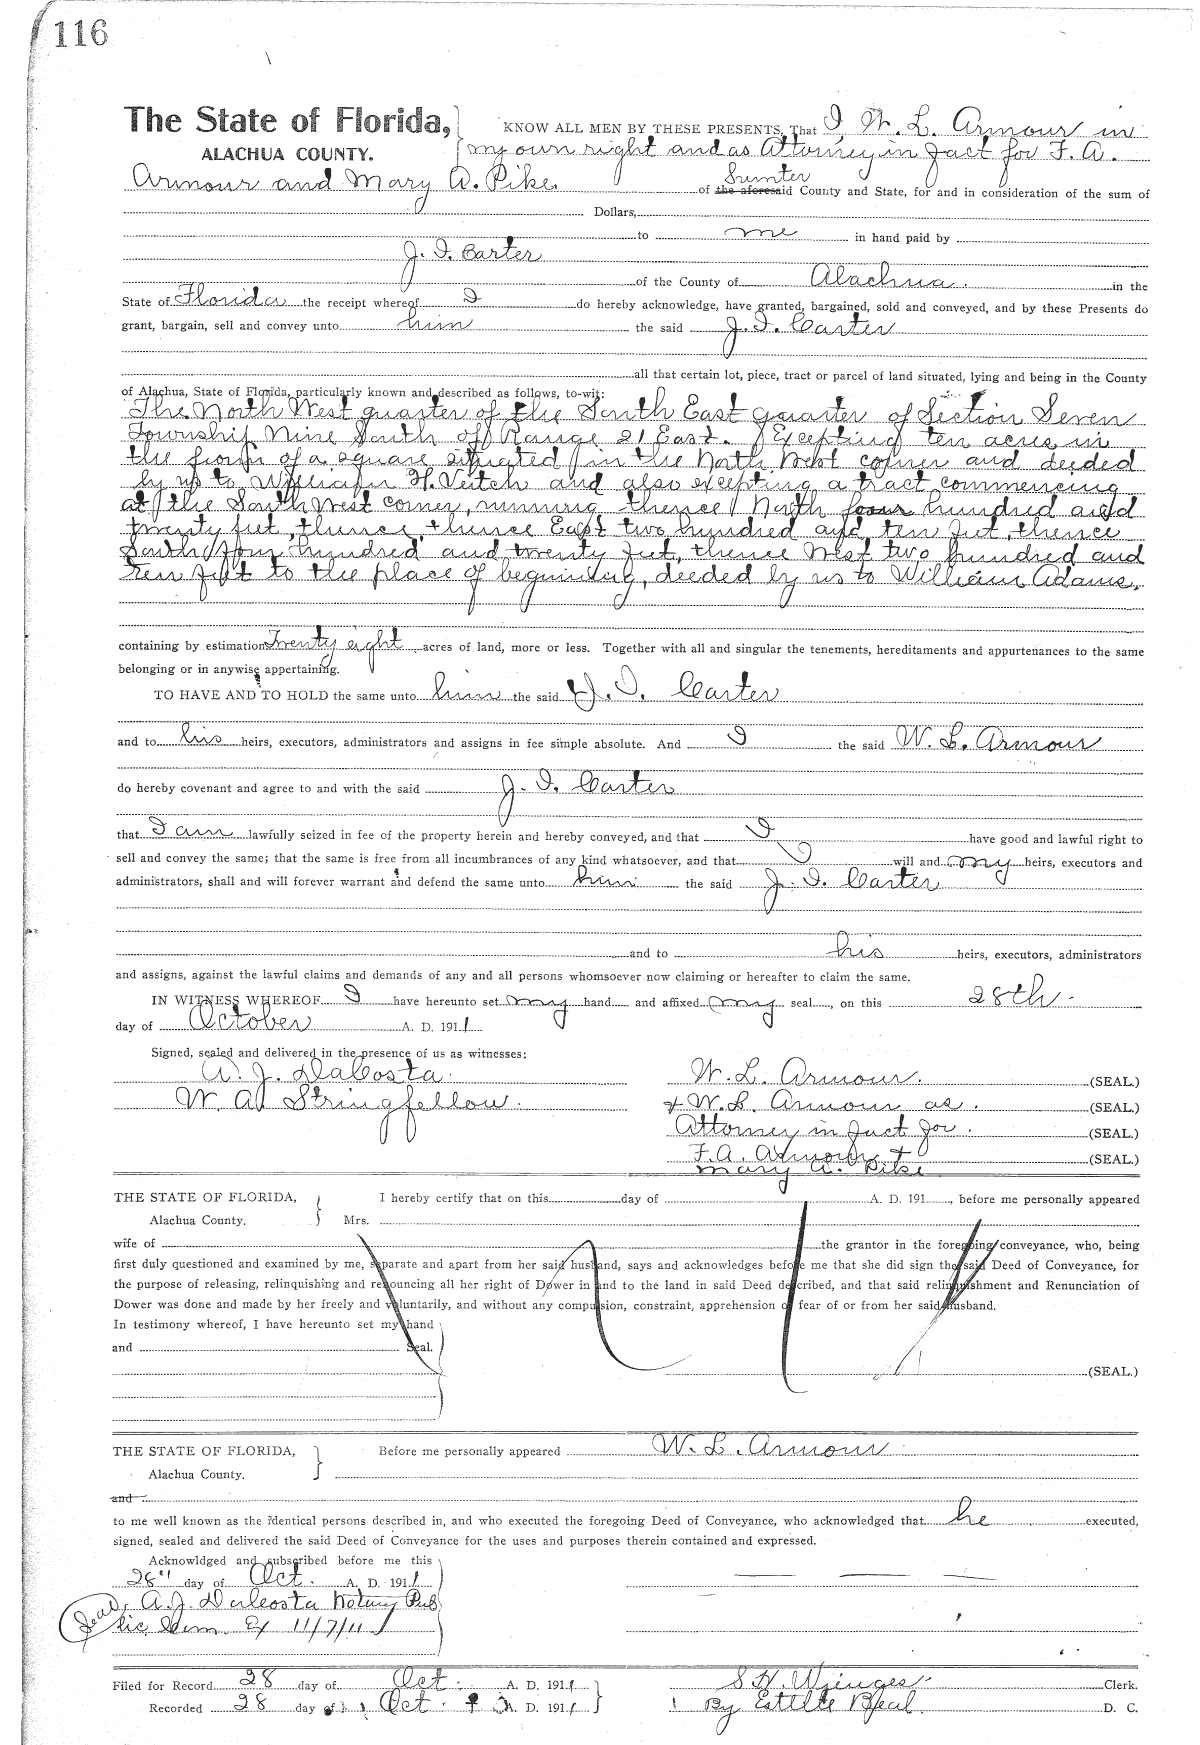 116
The State of Florida, KNOW ALL MEN BY THESE PRESENTS, That I, W. L. Armour in
ALACHUA COUNTY. my own right and as Attorney in fact for F. A.
Armour and Mary A. Pike of the aforesaid Sumter County and State, for and in consideration of the sum of
Dollars,
to me in hand paid by
J. I. Carter
of the County of Alachua. in the
State of Florida the receipt whereof I do hereby acknowledge, have granted, bargained, sold and conveyed, and by these Presents do
grant, bargain, sell and convey unto him the said J. I. Carter
all that certain lot, piece, tract or parcel of land situated, lying and being in the County
of Alachua, State of Florida, particularly known and described as follows, to-wit:
The North West quarter of the South East quarter of Section Seven
Township Nine South of Range 21 East. Excepting ten acres in
the form of a square situated in the North West corner and deeded
by us to William H. Veitch and also excepting a tract commencing
at the South West corner, running thence North four hundred and
twenty feet, thence, thence East two hundred and ten feet, thence
South four hundred and twenty feet, thence West two hundred and
ten feet to the place of beginning, deeded by us to William Adams.
containing by estimation Twenty eight acres of land, more or less. Together with all and singular the tenements, hereditaments and appurtenances to the same
belonging or in anywise appertaining.
TO HAVE AND TO HOLD the same unto him the said J. I. Carter
and to his heirs, executors, administrators and assigns in fee simple absolute. And I the said W. L. Armour
do hereby covenant and agree to and with the said J. I. Carter
that I am lawfully seized in fee of the property herein and hereby conveyed, and that I have good and lawful right to
sell and convey the same; that the same is free from all incumbrances of any kind whatsoever, and that I will and my heirs, executors and
administrators, shall and will forever warrant and defend the same unto him the said J. I. Carter
and to his heirs, executors, administrators
and assigns, against the lawful claims and demands of any and all persons whomsoever now claiming or hereafter to claim the same.
IN WITNESS WHEREOF I have hereunto set my hand and affixed my seal, on this 28th.
day of October A. D. 1911
Signed, sealed and delivered in the presence of us as witnesses:
A. J. DaCosta. W. L. Armour. (SEAL.)
W. A. Stringfellow. & W. L. Armour as. (SEAL.)
Attorney in fact for. (SEAL.)
F. A. Armour & (SEAL.)
Mary A. Pike
THE STATE OF FLORIDA, I hereby certify that on this day of A. D. 191 , before me personally appeared
Alachua County. Mrs.
wife of the grantor in the foregoing conveyance, who, being
first duly questioned and examined by me, separate and apart from her said husband, says and acknowledges before me that she did sign the said Deed of Conveyance, for
the purpose of releasing, relinquishing and renouncing all her right of Dower in and to the land in said Deed described, and that said relinquishment and Renunciation of
Dower was done and made by her freely and voluntarily, and without any compulsion, constraint, apprehension or fear of or from her said husband.
In testimony whereof, I have hereunto set my hand
and Seal.
(SEAL.)
THE STATE OF FLORIDA, Before me personally appeared W. L. Armour
Alachua County.
and
to me well known as the identical persons described in, and who executed the foregoing Deed of Conveyance, who acknowledged that he executed,
signed, sealed and delivered the said Deed of Conveyance for the uses and purposes therein contained and expressed.
Acknowldged and subscribed before me this
28" day of Oct. A. D. 1911
Seal, A. J. DaCosta Notary Pub
lic. Com. Ex 11/7/11
Filed for Record 28 day of Oct. A. D. 1911 S. H. Wienges. Clerk.
Recorded 28 day of Oct. A. D. 1911 By Estelle Beal. D. C.